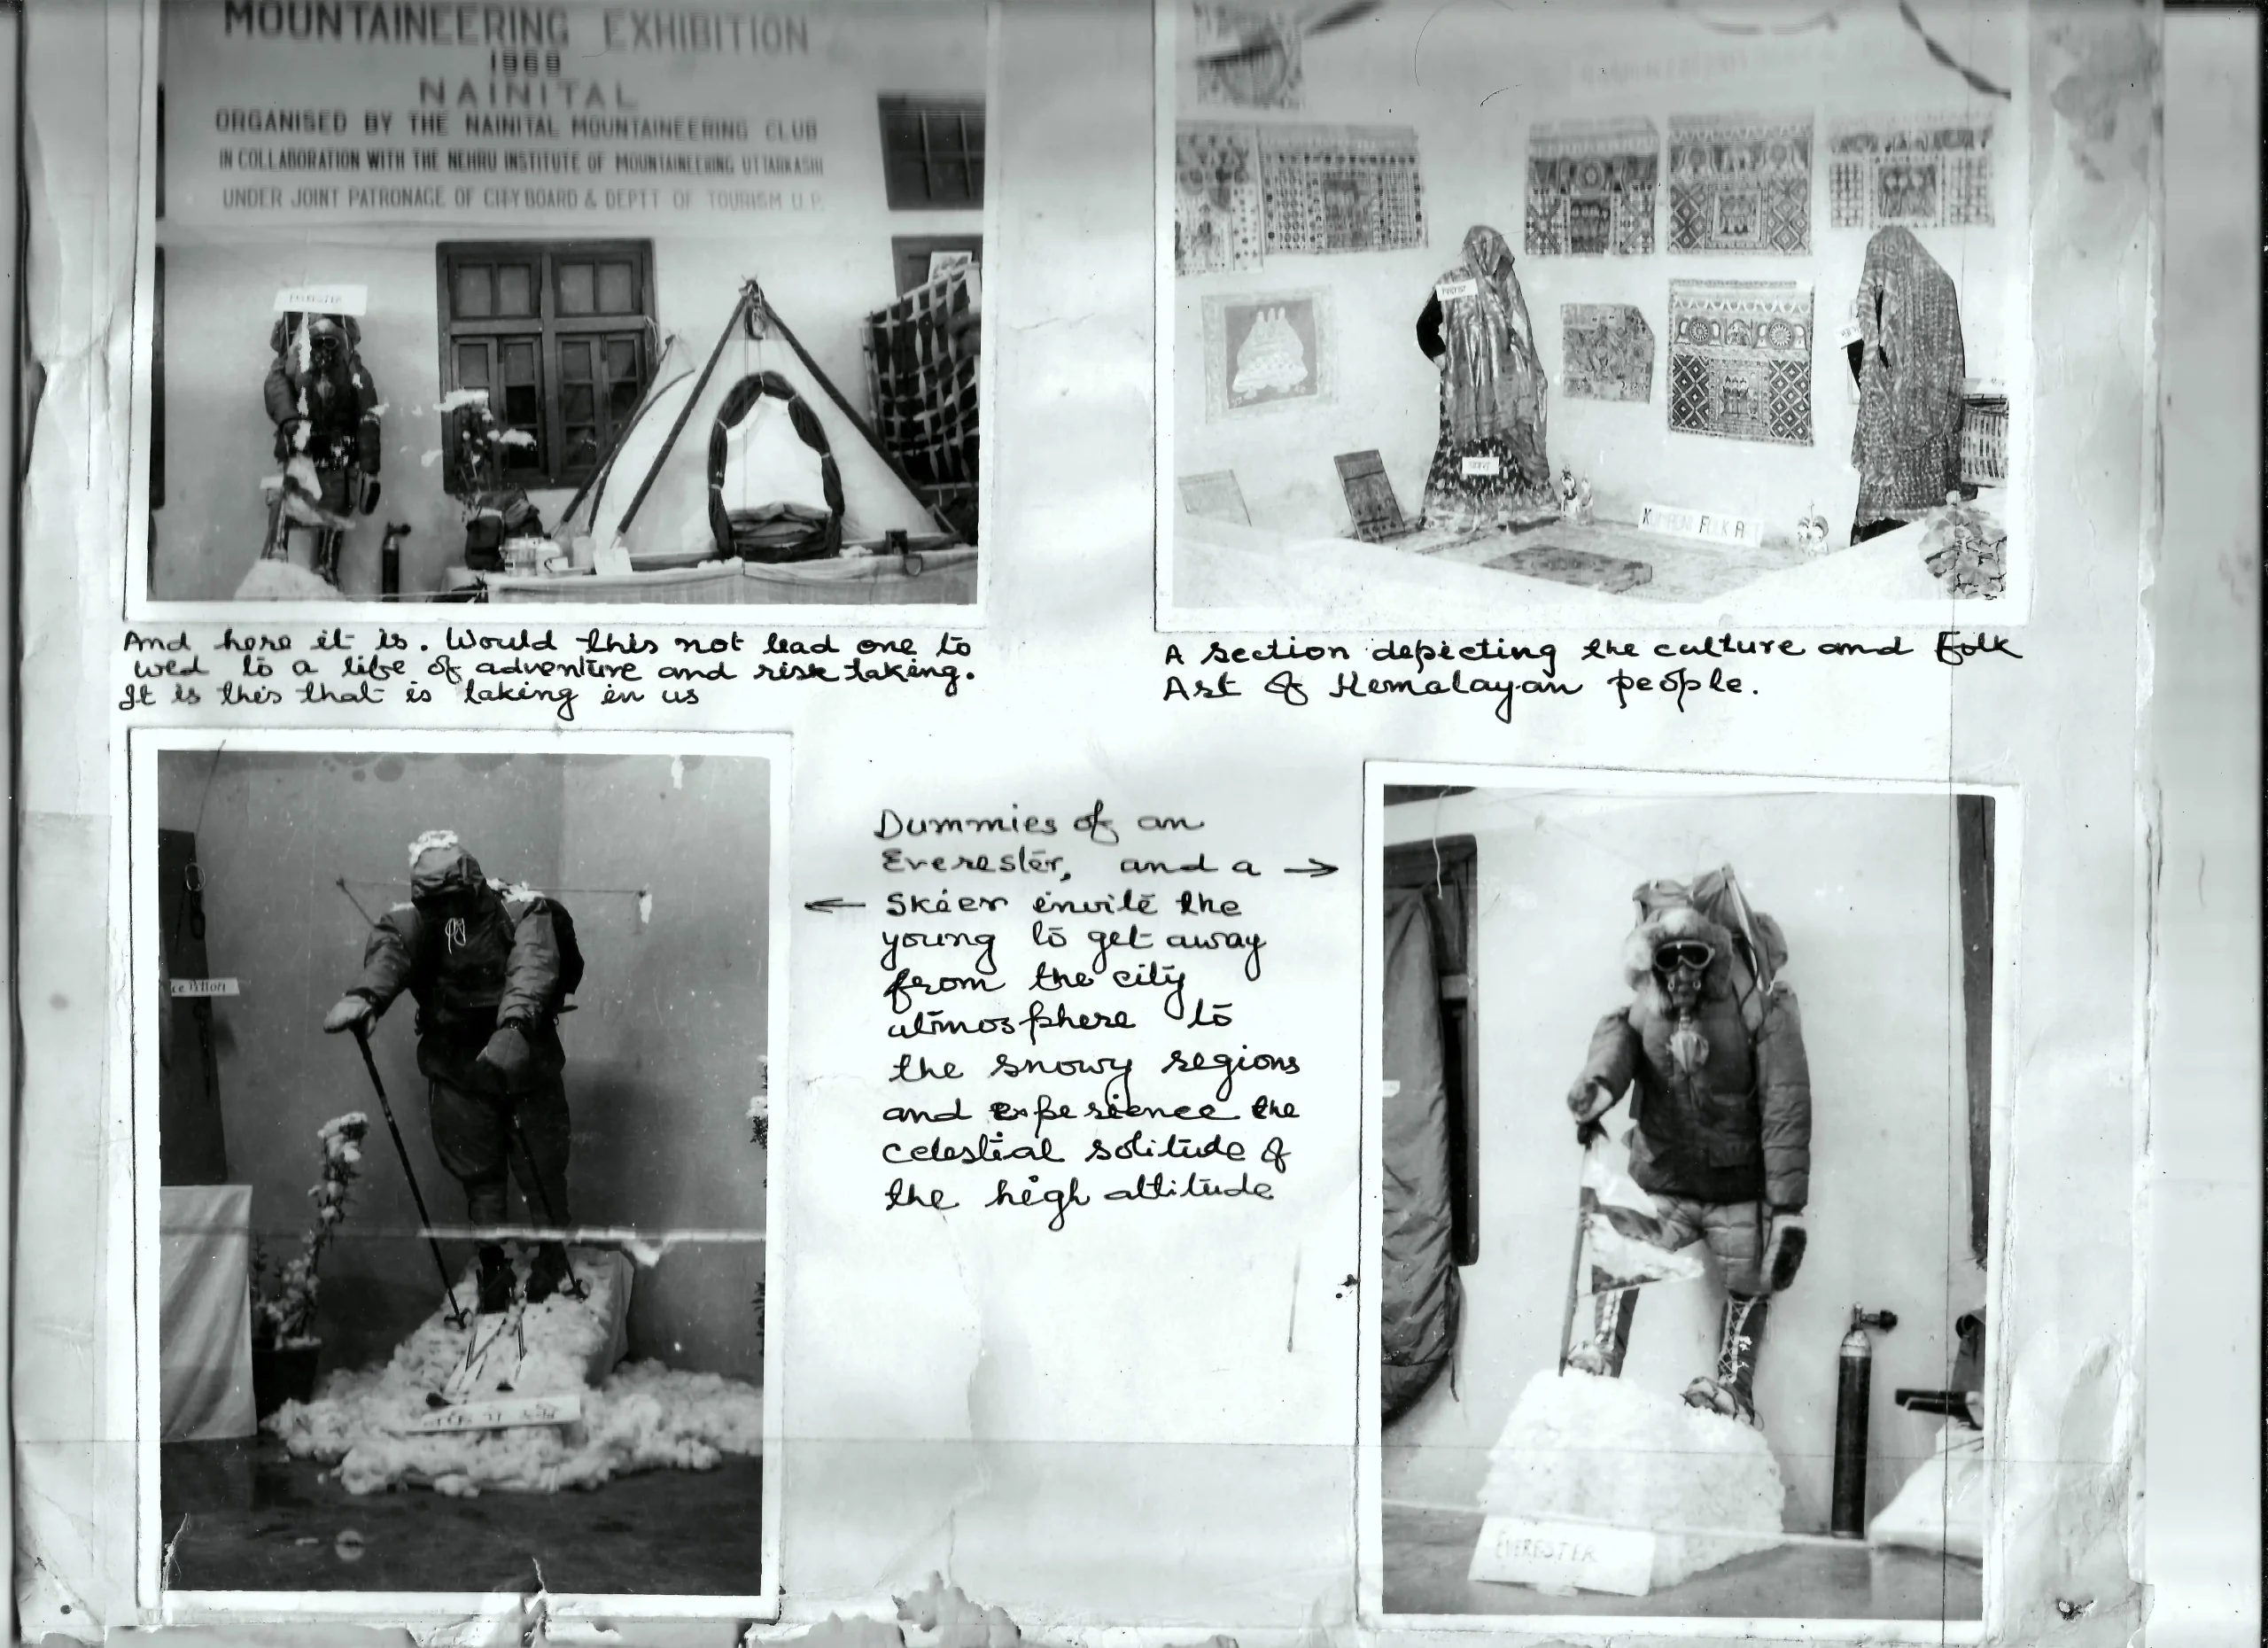 MOUNTAINEERING EXHIBITION
1969
NAINITAL
ORGANISED BY THE NAINITAL MOUNTAINEERING CLUB
IN COLLABORATION WITH THE NEHRU INSTITUTE OF MOUNTAINEERING UTTARKASHI
UNDER JOINT PATRONAGE OF CITY BOARD & DEPTT OF TOURISM U.P.
EVERESTER
KUMAONI FOLK ART
And here it is. Would this not lead one to
wed to a life of adventure and risk taking.
It is this that is taking in us
A section depicting the culture and Folk
Art of Hemalayan people.
Dummies of an
Everester, and a →
← Skier invite the
young to get away
from the city
atmosphere to
the snowy regions
and experience the
celestial solitude of
the high attitude
EVERESTER